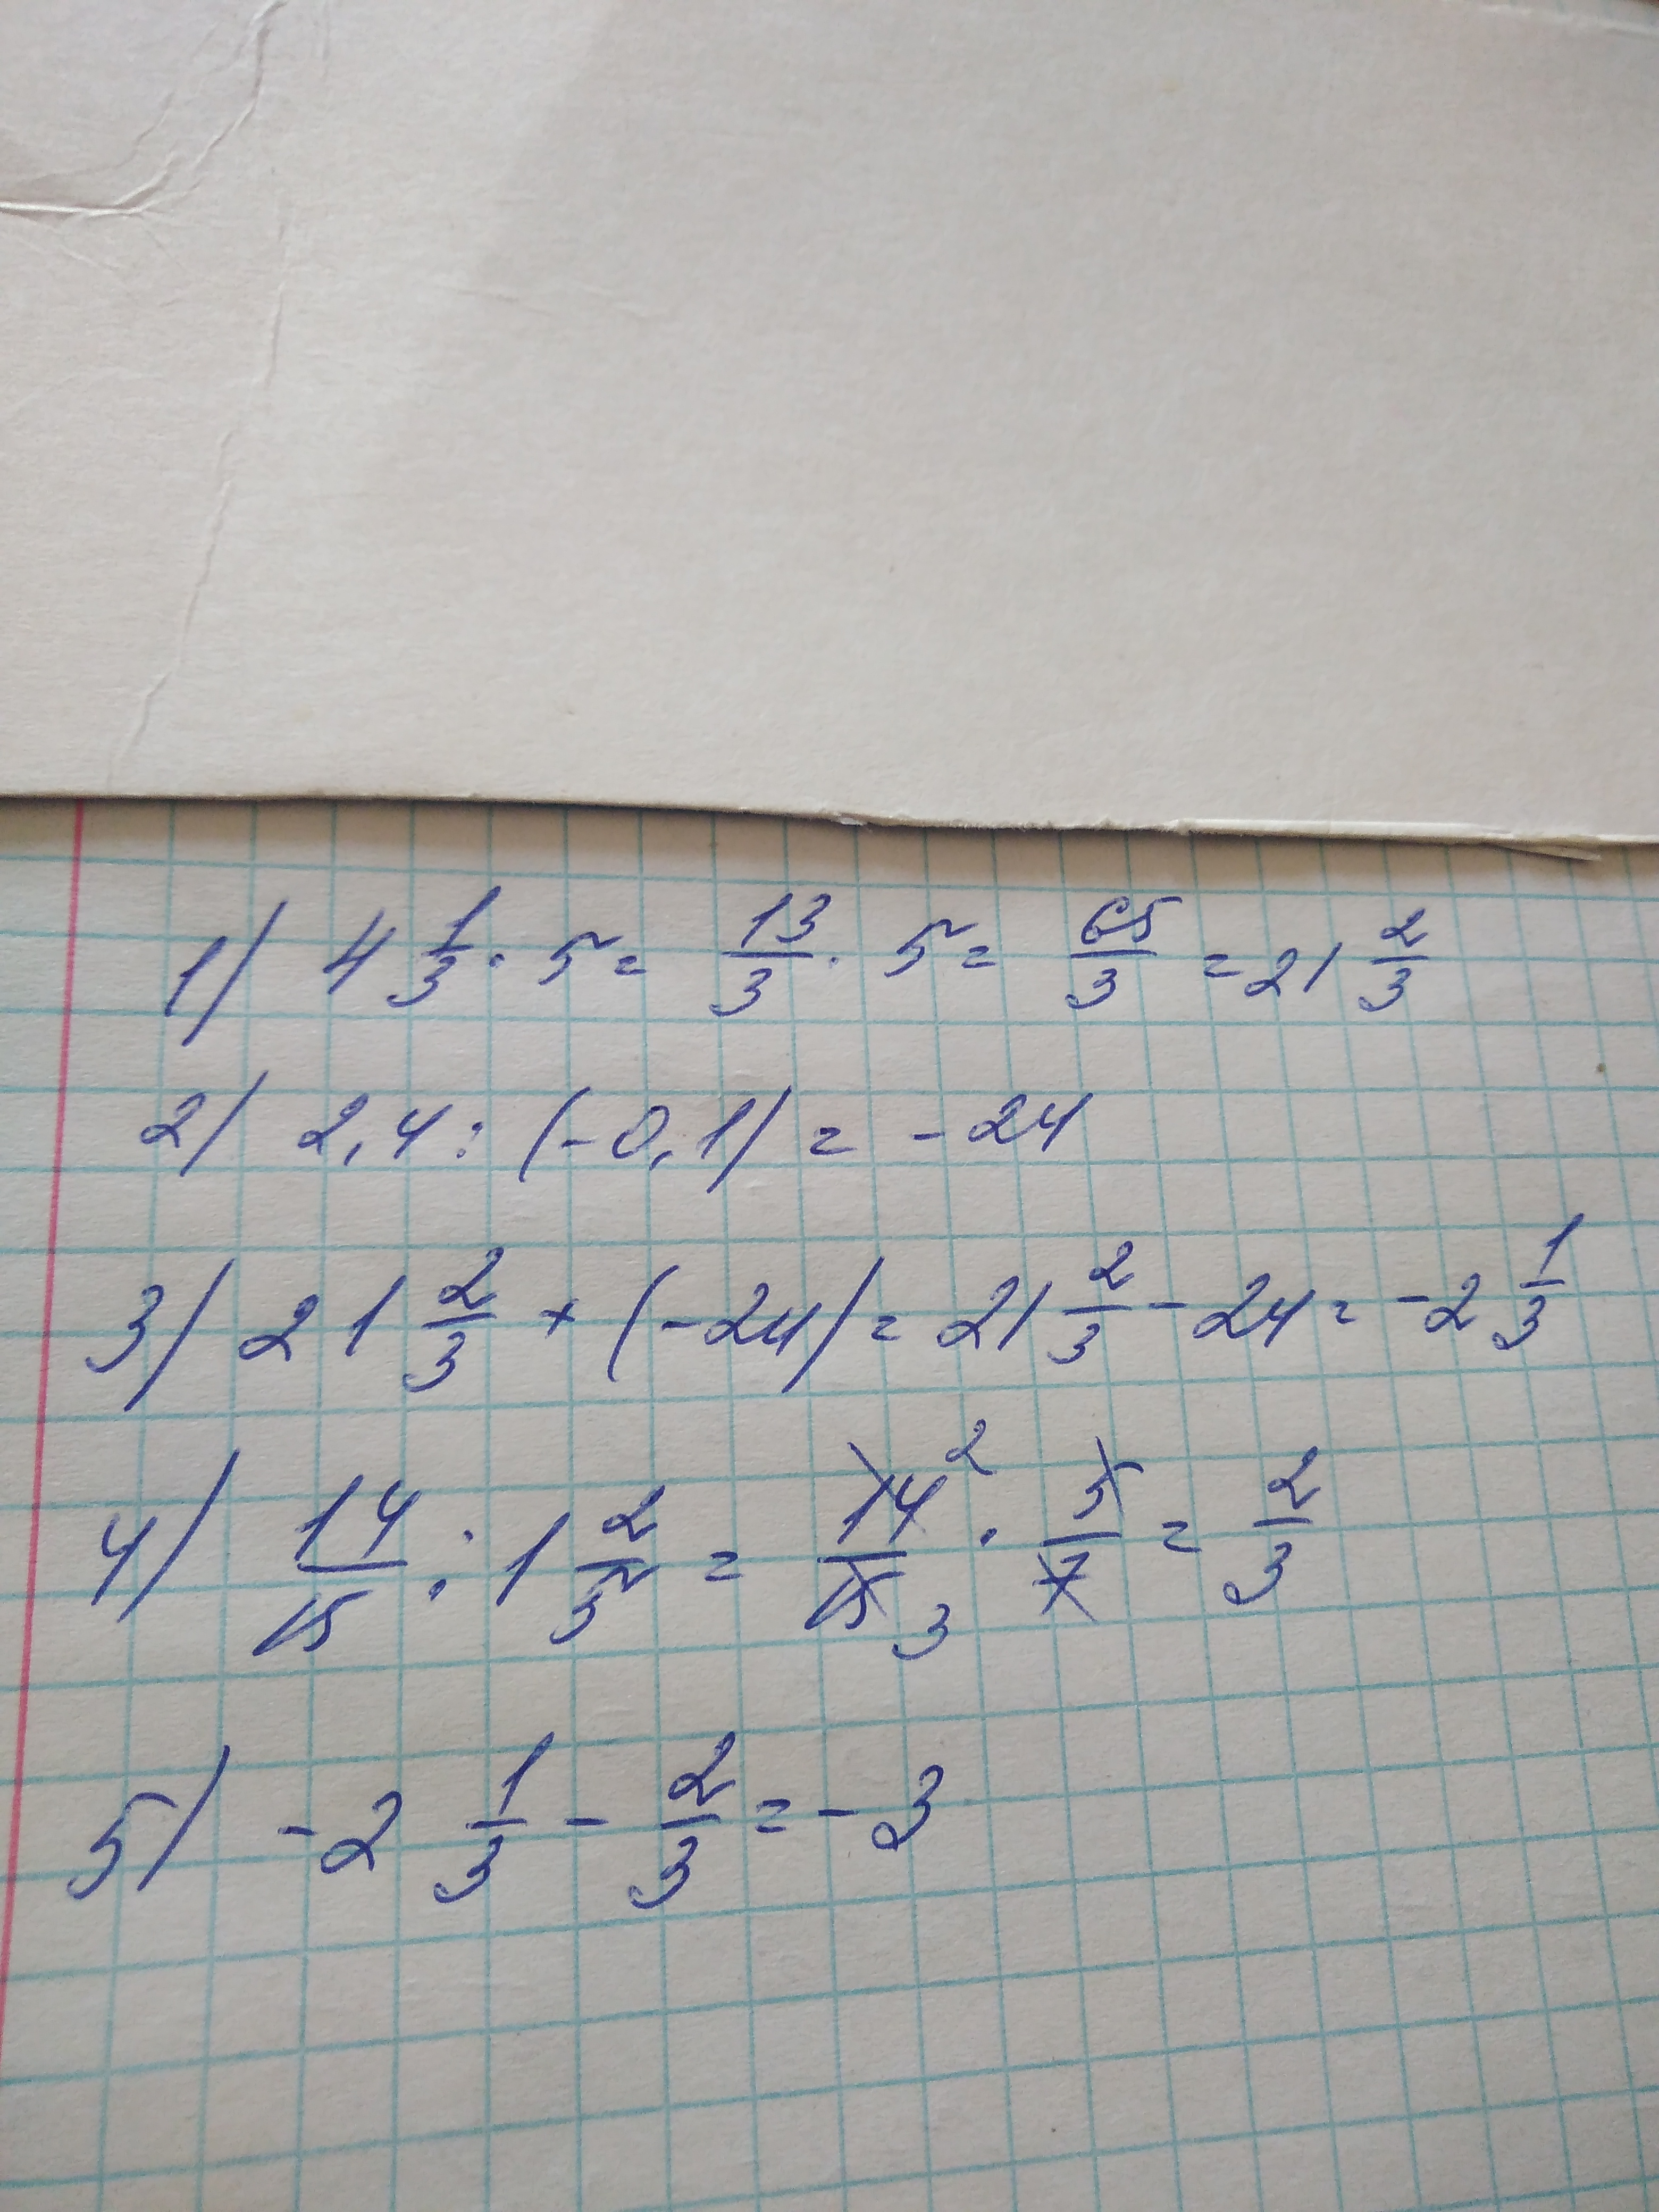 1) 4 1/3 · 5 = 13/3 · 5 = 65/3 = 21 2/3
2) 2,4 : (-0,1) = -24
3) 21 2/3 + (-24) = 21 2/3 - 24 = -2 1/3
4) 14/15 : 1 2/5 = 14 2/15 3 · 5/7 = 2/3
5) -2 1/3 - 2/3 = -3